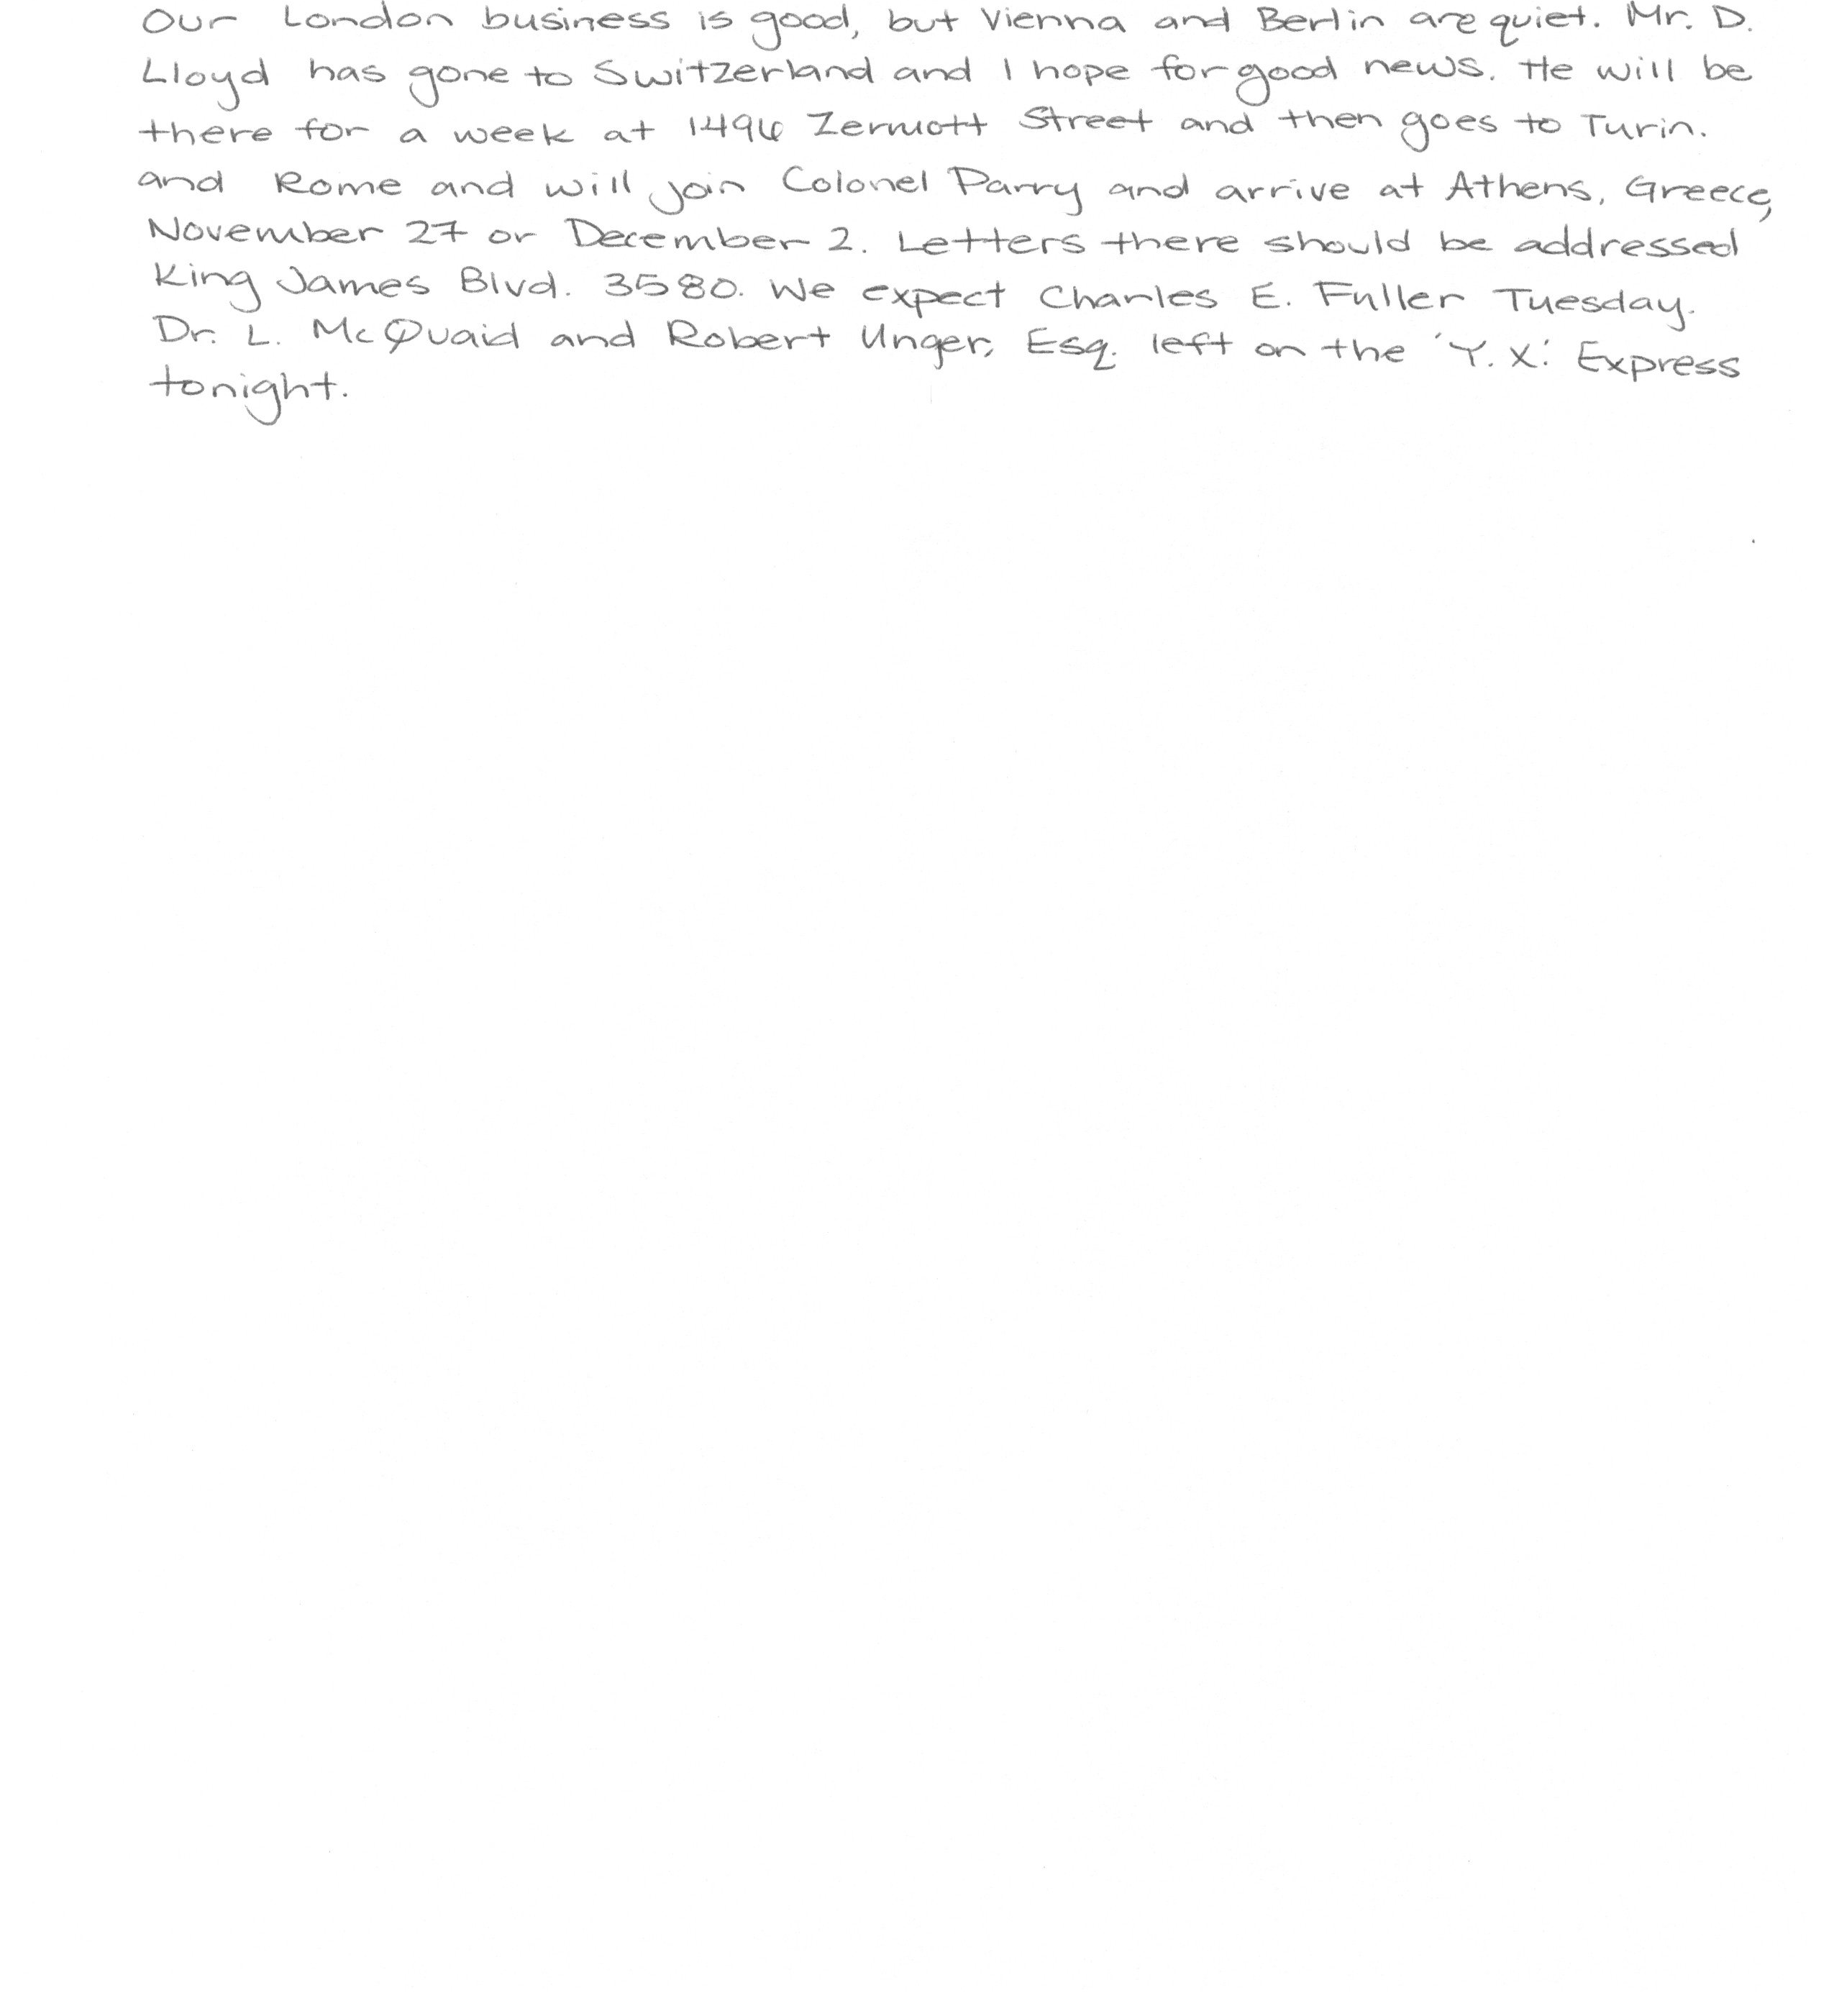 Our London business is good, but Vienna and Berlin are quiet. Mr. D.
Lloyd has gone to Switzerland and I hope for good news. He will be
there for a week at 1496 Zermott Street and then goes to Turin.
and Rome and will join Colonel Parry and arrive at Athens, Greece,
November 27 or December 2. Letters there should be addressed
King James Blvd. 3580. We expect Charles E. Fuller Tuesday.
Dr. L. McQuaid and Robert Unger, Esq. left on the 'Y. X.' Express
tonight.